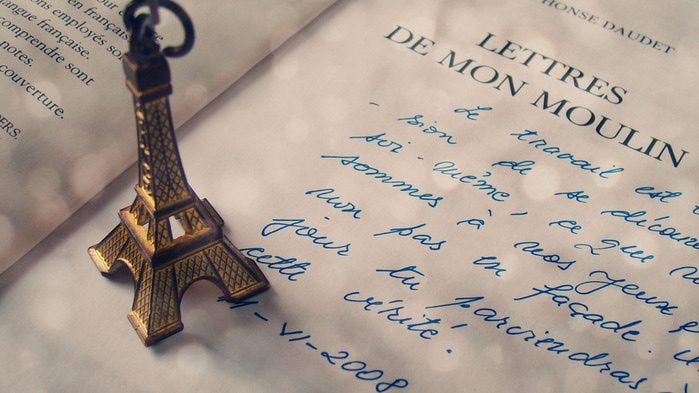 en français
ions employés so
langue française.
comprendre sont
notes.
couverture.
ERS.
PHONSE DAUDET
LETTRES
DE MON MOULIN
- Le travail est
sion de se découv
soi-même, ce que n
sommes à nos yeux
non pas en façade. u
jour tu parviendras
cette vérité.
11-VI-2008